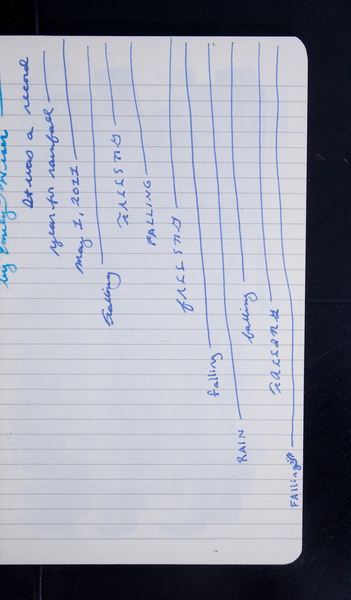 by Emily
It was a record
year for rainfall
May 1, 2011
falling
FALLING
FALLING
fALLING
falling
RAIN
falling
FALLING
FAlling